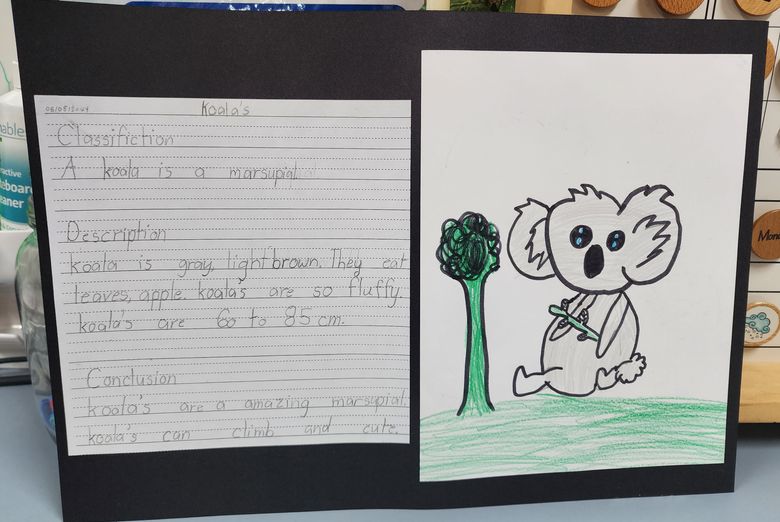 06/05/2024
Koala's
Classifiction
A koala is a marsupial.
Description
koala is gray, lightbrown. They eat
leaves, apple. koala's are so fluffy.
koala's are 60 to 85 cm.
Conclusion
koala's are a amazing marsupial.
koala's can climb and cute.